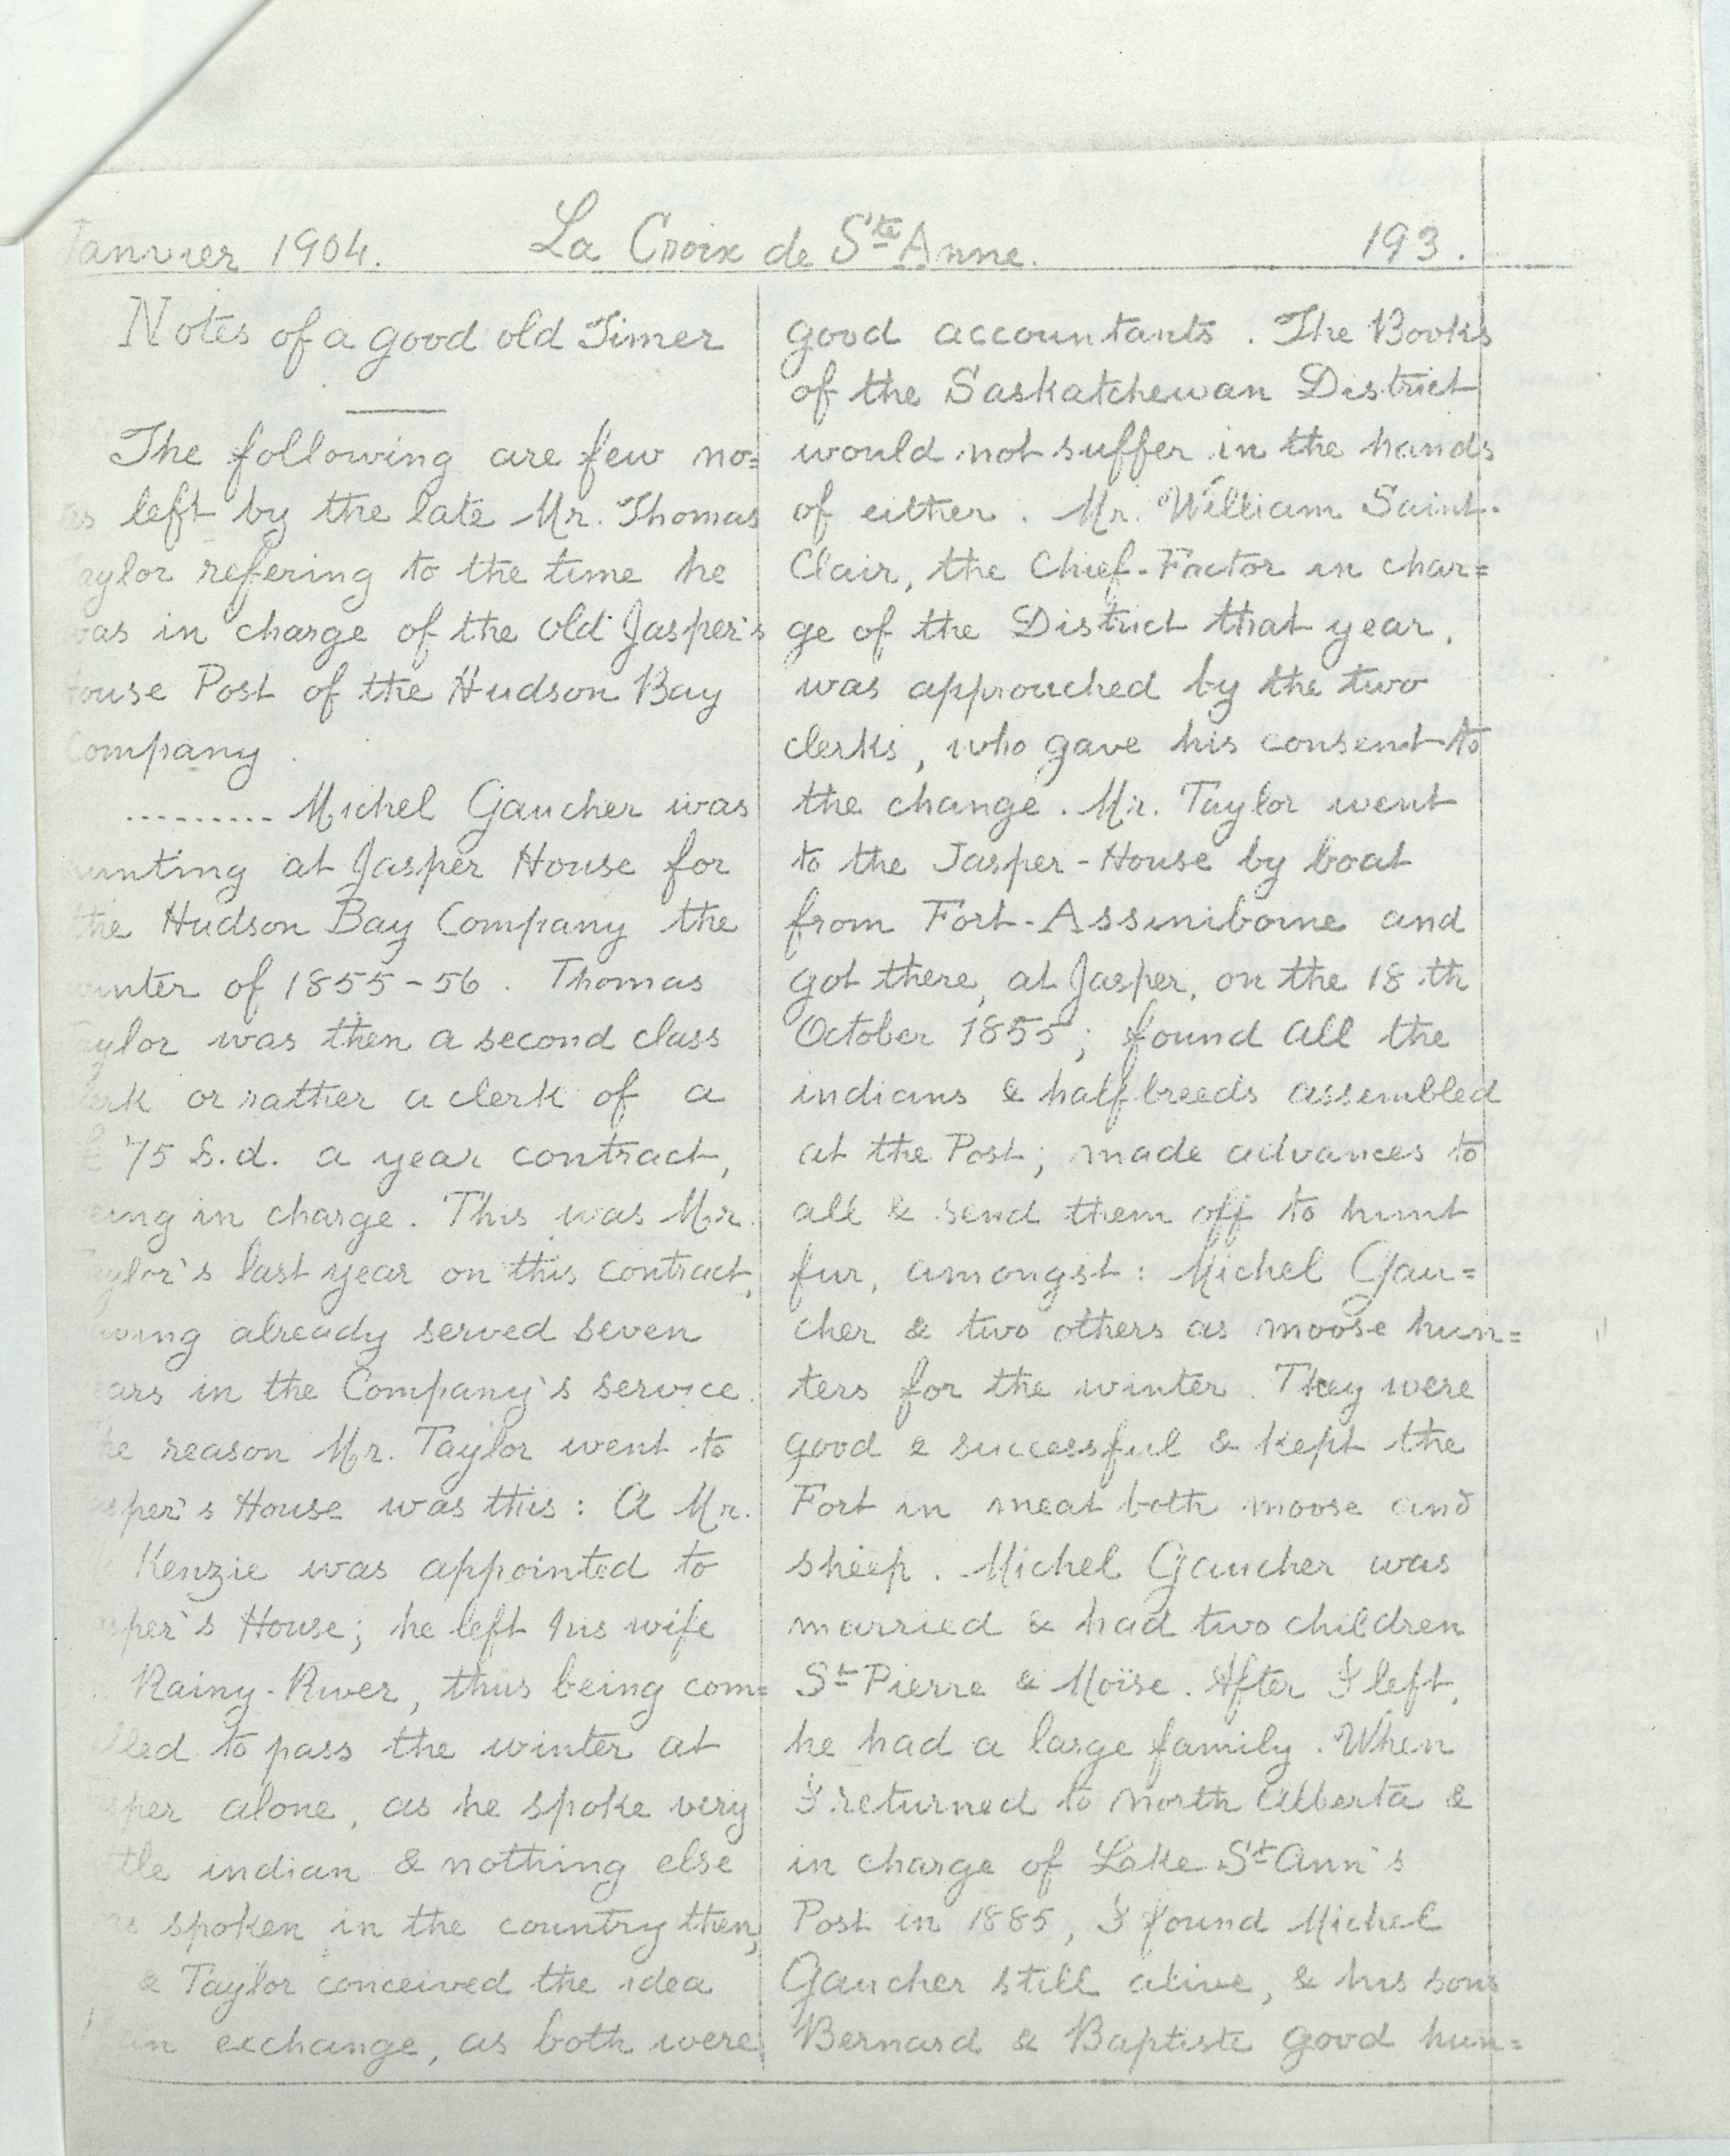 Janvier 1904. La Croix de Ste Anne. 193.
Notes of a good old Timer
The following are few no=
es left by the late Mr. Thomas
aylor refering to the time he
was in charge of the old Jasper's
ouse Post of the Hudson Bay
Company.
......... Michel Gaucher was
unting at Jasper House for
the Hudson Bay Company the
inter of 1855-56. Thomas
aylor was then a second class
erk or rather a clerk of a
£ 75 S.d. a year contract,
eing in charge. This was Mr.
aylor's last year on this contract,
aving already served seven
ears in the Company's service.
he reason Mr. Taylor went to
sper's House was this: A Mr.
Kenzie was appointed to
sper's House; he left his wife
Rainy-River, thus being com=
lled to pass the winter at
sper alone, as he spoke very
ttle indian & nothing else
as spoken in the country then,
& Taylor conceived the idea
an exchange, as both were
good accountants. The Books
of the Saskatchewan District
would not suffer in the hands
of either. Mr. William Saint-
Clair, the Chief-Factor in char=
ge of the District that year,
was approuched by the two
clerks, who gave his consent to
the change. Mr. Taylor went
to the Jasper-House by boat
from Fort-Assiniboine and
got there, at Jasper, on the 18th
October 1855; found all the
indians & halfbreeds assembled
at the Post; made advances to
all & send them off to hunt
fur, amongst: Michel Gau=
cher & two others as moose hun=
ters for the winter. They were
good & successful & kept the
Fort in meat both moose and
sheep. Michel Gaucher was
married & had two children
St Pierre & Moïse. After I left,
he had a large family. When
I returned to North Alberta &
in charge of Lake St Ann's
Post in 1885, I found Michel
Gaucher still alive, & his sons
Bernard & Baptiste good hun=